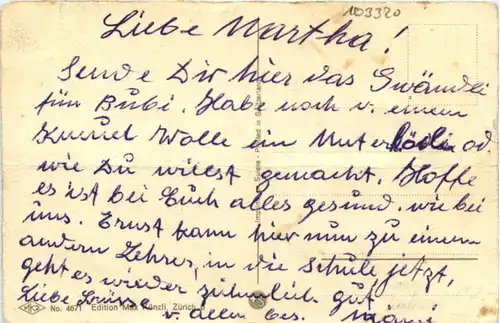 103320
Liebe Martha!
Sende Dir hier das Gwändli
für Bubi. Habe noch v. einem
Knäuel Wolle ein Unterkleidli od.
wie Du willst gemacht. Hoffe
es ist bei Euch alles gesund. wie bei
uns. Ernst kann hier nun zu einem
andern Lehrer, in die Schule jetzt,
geht es wieder ziemlich gut
Liebe Grüsse v. allen bes.
No. 4671 Edition Max Künzli, Zürich 6
Printed in Switzerland